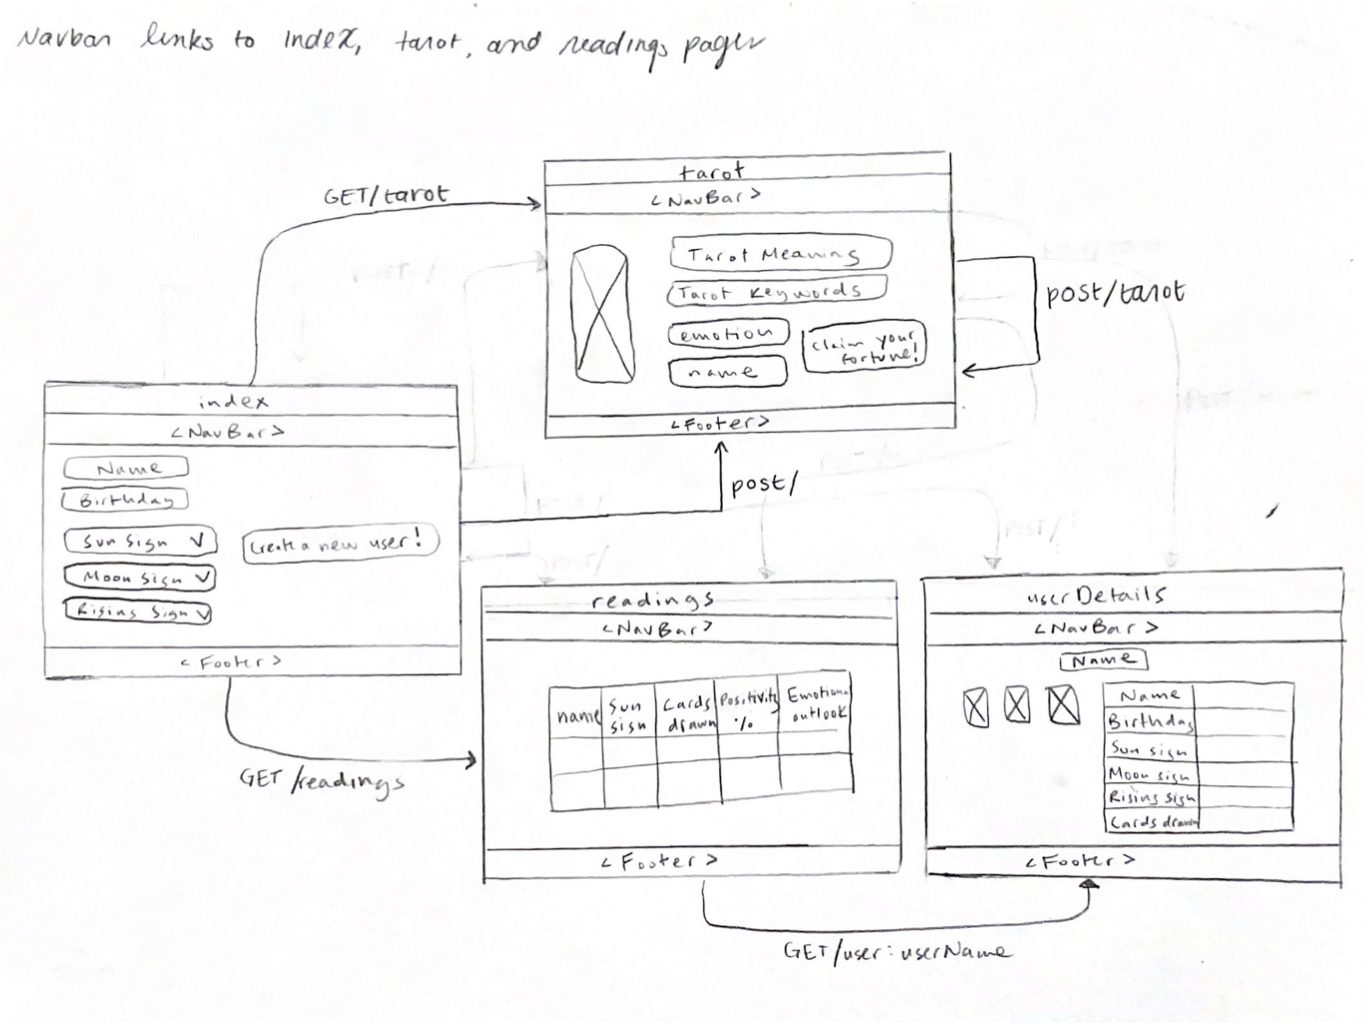 Navbar links to index, tarot, and readings pages
GET/tarot
tarot
<NavBar>
Tarot Meaning
Tarot Keywords
emotion
name
claim your
fortune!
<Footer>
post/tarot
index
<NavBar>
Name
Birthday
Sun Sign
Moon Sign
Rising Sign
Create a new user!
<Footer>
post/
GET/readings
readings
<NavBar>
name
Sun
sign
Cards
drawn
Positivity
%
Emotional
outlook
<Footer>
userDetails
<NavBar>
Name
Name
Birthday
Sun sign
Moon sign
Rising Sign
Cards drawn
<Footer>
GET/user:userName